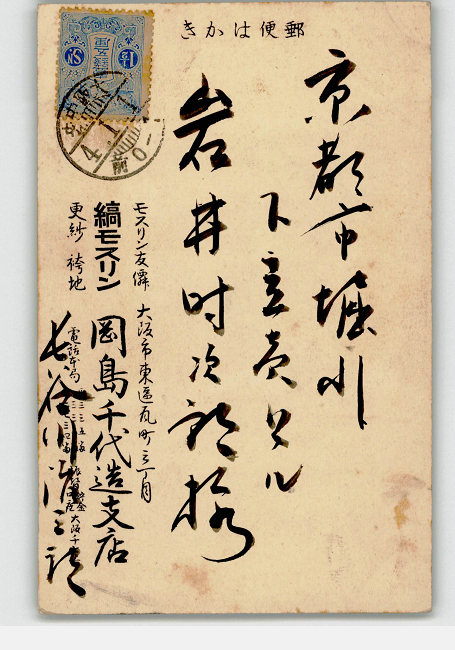 郵便はかき
京都市堀川
下立売上ル
岩井時次郎様
モスリン友僊
縞モスリン
更紗 袴地
大阪市東區瓦町三丁目
岡島千代造支店
電話本局
長谷川